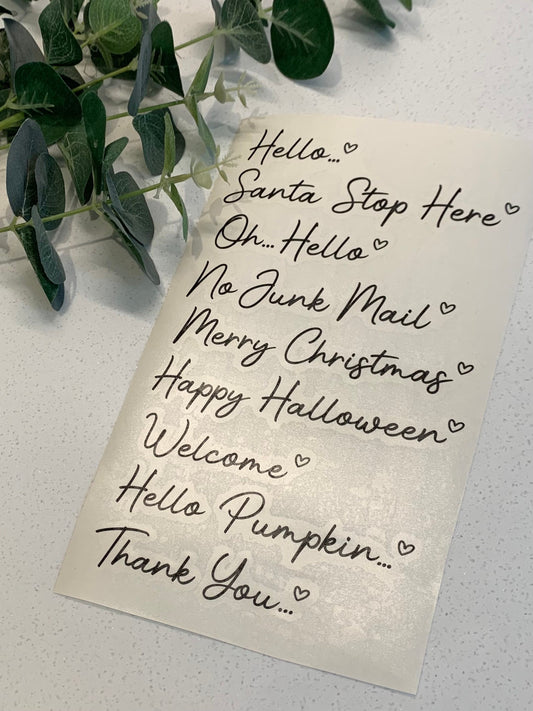 Hello...♡
Santa Stop Here♡
Oh... Hello♡
No Junk Mail♡
Merry Christmas♡
Happy Halloween♡
Welcome♡
Hello Pumpkin...♡
Thank You...♡